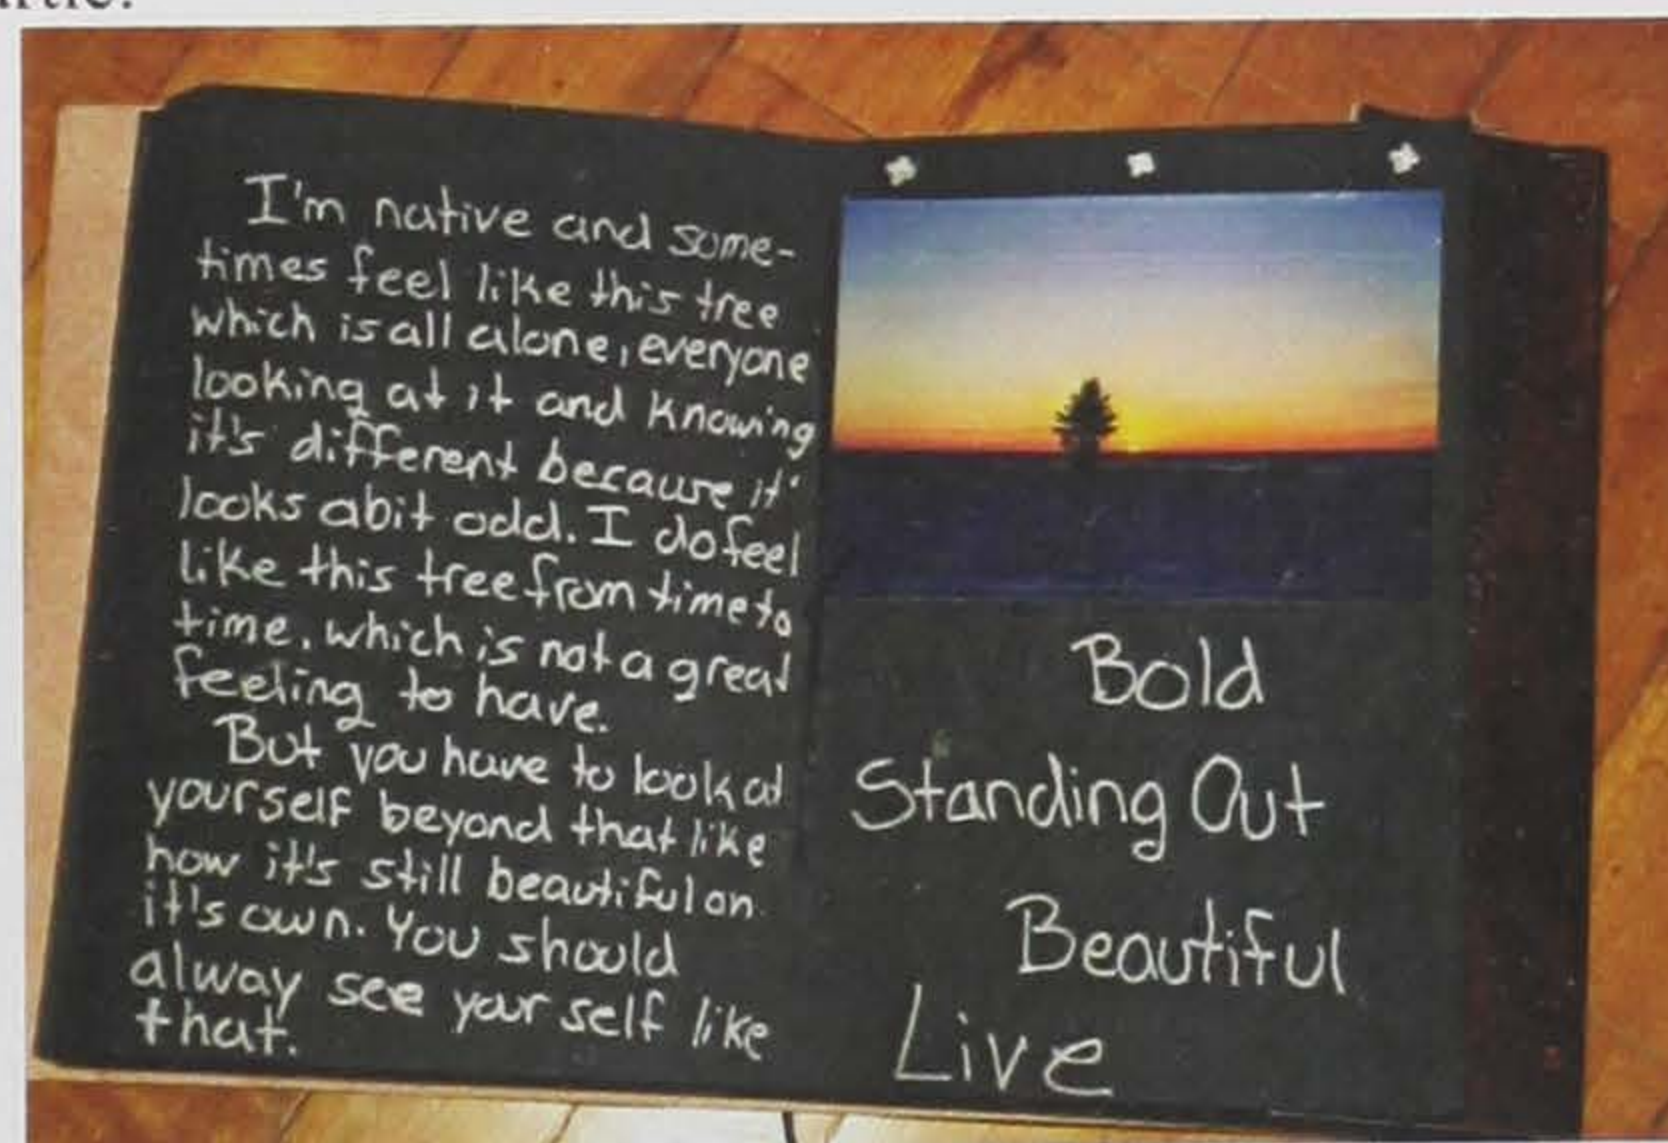 I'm native and some-
times feel like this tree
which is all alone, everyone
looking at it and knowing
it's different because it'
looks abit odd. I do feel
like this tree from time to
time. which is not a great
feeling to have.
But you have to look at
yourself beyond that like
how it's still beautiful on
it's own. You should
alway see your self like
that.
Bold
Standing Out
Beautiful
Live